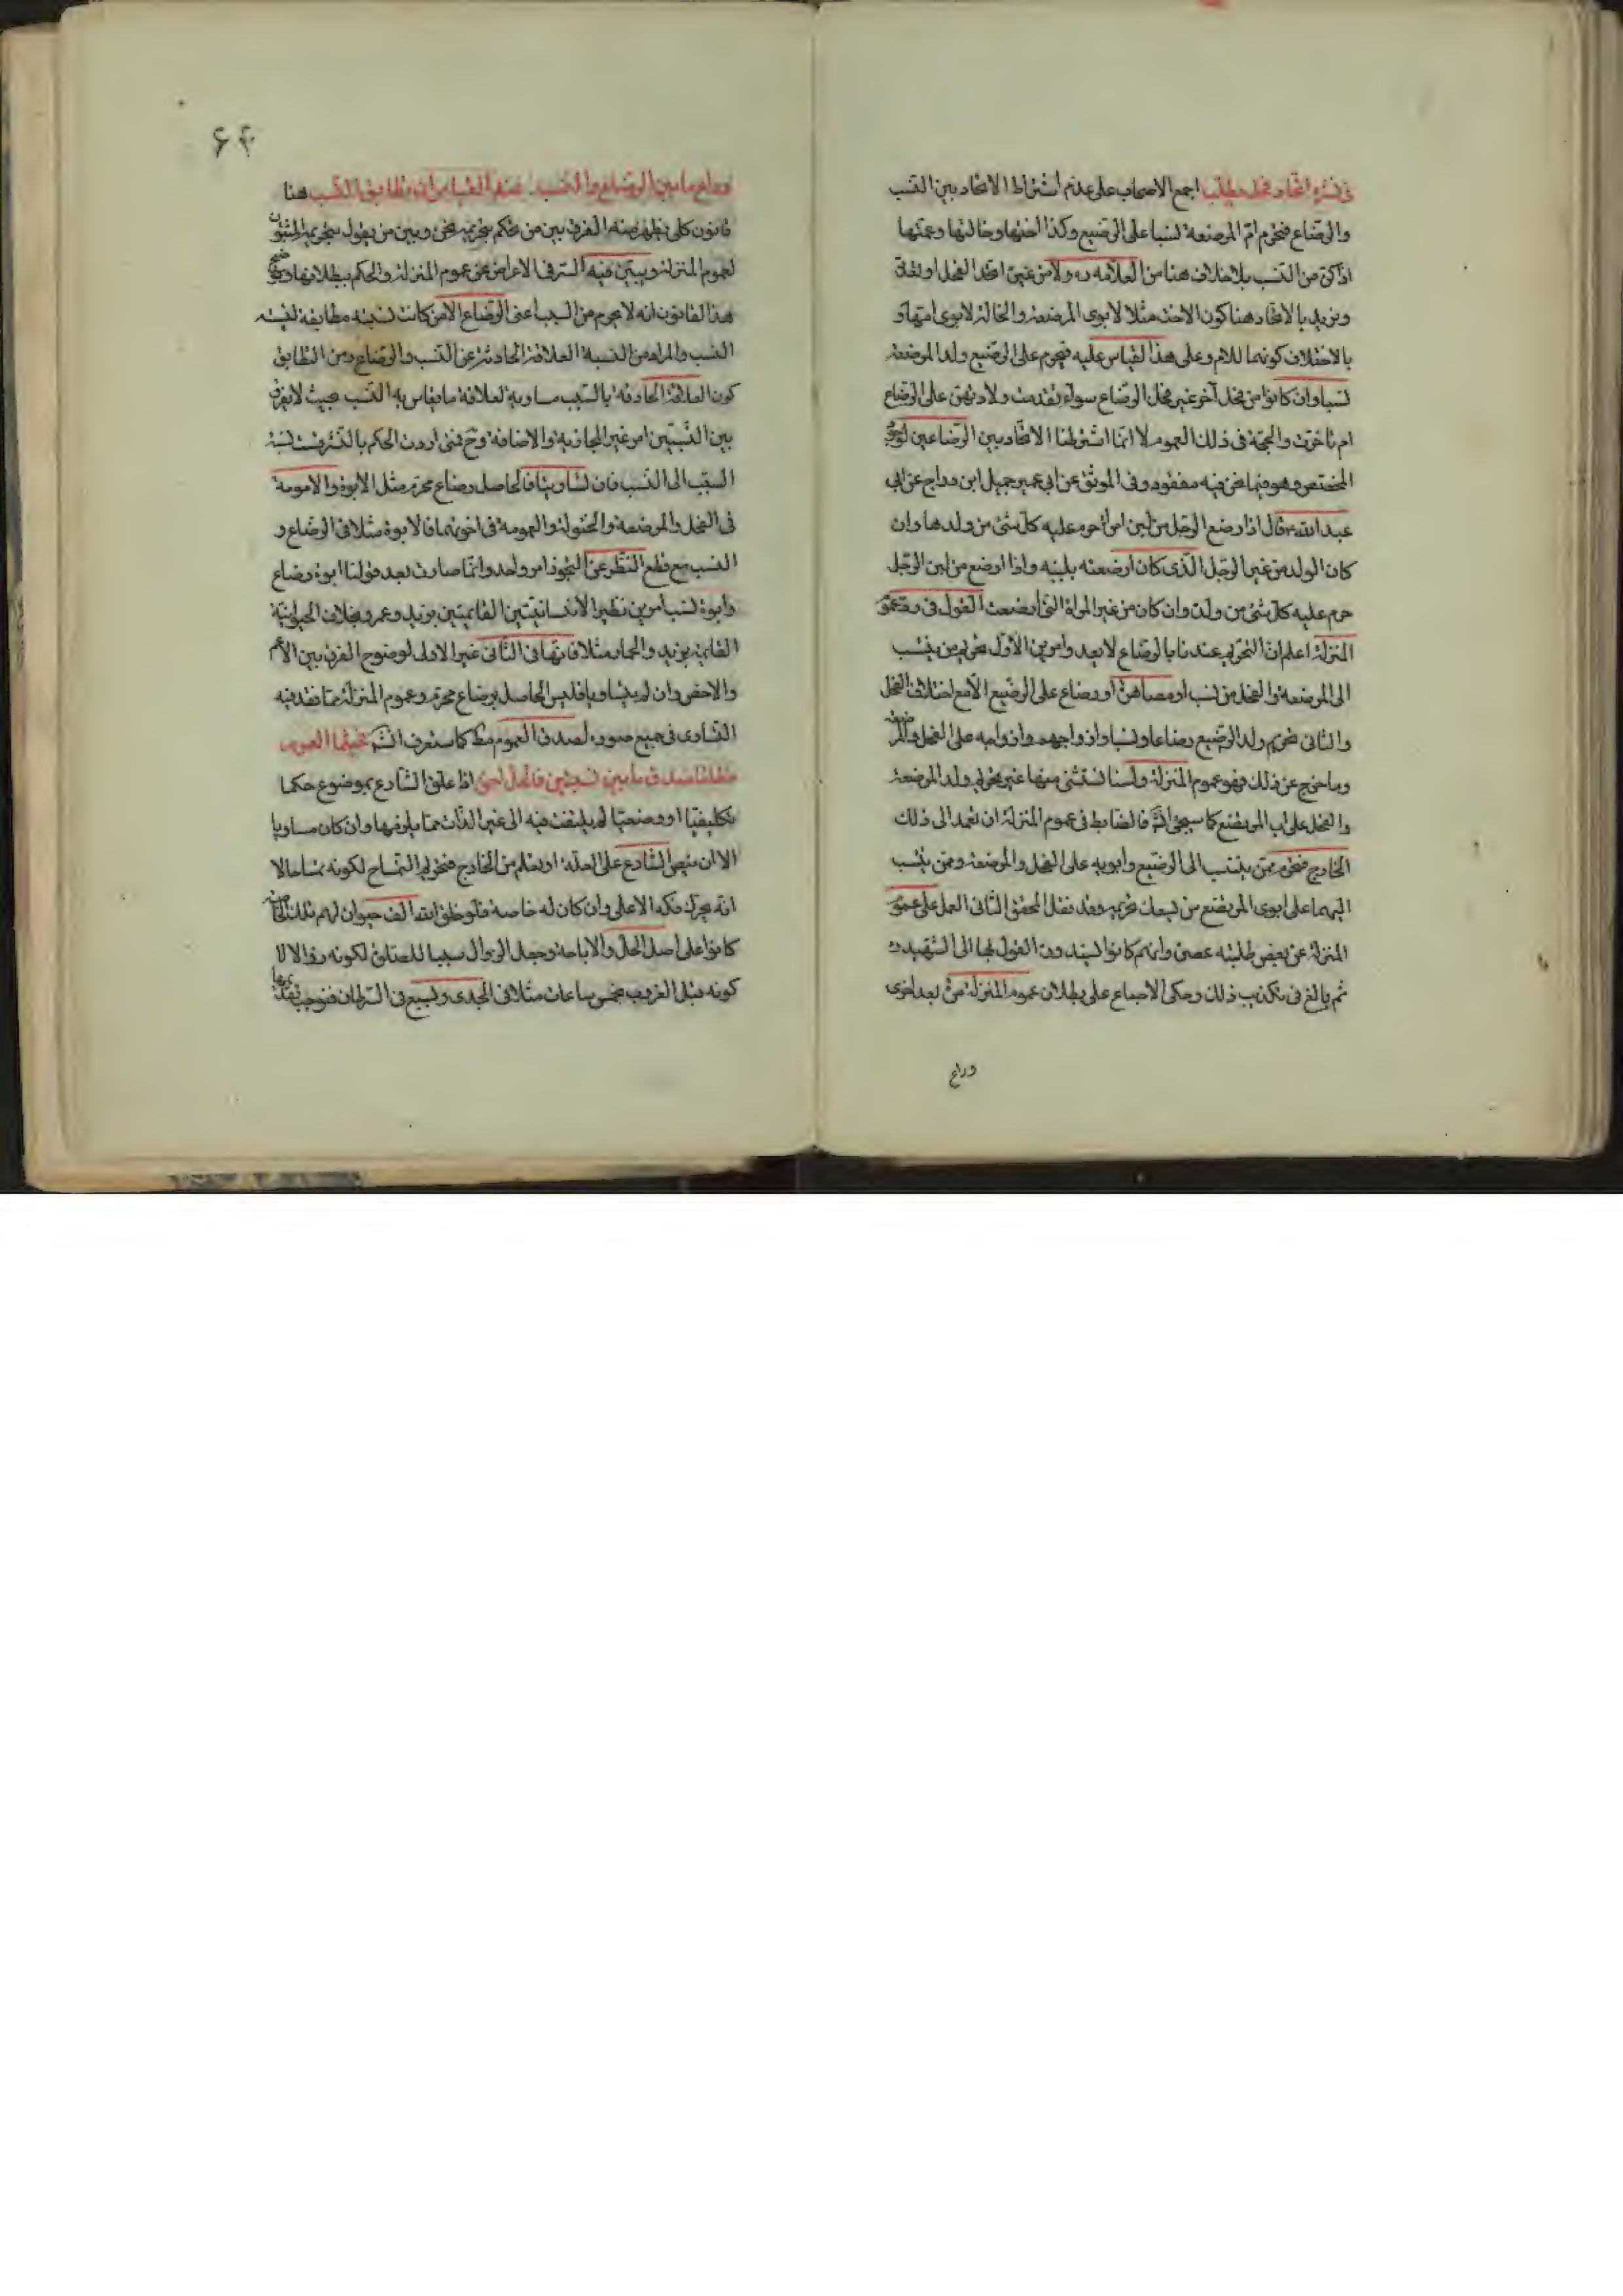 اجمع الاصحاب على عدم اشتراط الاتحاد بين النسب
والرضاع فتحرم ام المرضعة نسبا على الرضيع وكذا اختها وخالتها وعمتها
اذا كن من النسب بلا خلاف هنا من العلامه ره ولا من غيره اتحد الفحل او تعدد
ونريد بالاتحاد هنا كون الاخت مثلا لابوى المرضعة والخالة لابوى امها و
بالاختلاف كونهما للام وعلى هذا القياس عليه فيحرم على الرضيع ولد المرضعة
نسبا وان كانوا من فحل آخر غير فحل الرضاع سواء تقدمت ولادتهم على الرضاع
ام تاخرت والحجة فى ذلك العموم لانا انما اشترطنا الاتحاد بين الرضاعين لوجود
المخصص وهو فيما نحن فيه مفقود وفى الموثق عن ابى عمير جميل ابن دراج عن ابى
عبد الله ع قال اذا رضع الرجل من لبن امرأة حرم عليه كل شئ من ولدها وان
كان الولد من غير الرجل الذى كان ارضعته بلبنه واذا ارضع من لبن الرجل
حرم عليه كل شئ من ولده وان كان من غير المراة التى ارضعت القول فى رد عموم
المنزلة اعلم ان التحريم عندنا بالرضاع لا يعدو امرين الاول تحريم من ينتسب
الى المرضعة والفحل من نسب او مصاهرة او رضاع على الرضيع الا مع اختلاف الفحل
والثانى تحريم ولد الرضيع رضاعا ونسبا وازواجهم وازواجه على الفحل والمرضعة
وما خرج عن ذلك فهو عموم المنزلة ولسنا نستثنى منها غير تحريم ولد المرضعة
والفحل على اب المرتضع كما سيجئ انش فالضابط فى عموم المنزلة ان تعمد الى ذلك
الخارج فتحرم ممن ينتسب الى الرضيع وابويه على الفحل والمرضعة وممن ينتسب
اليهما على ابوى المرتضع من تحريمه وقد نقل المحقق الثانى العمل على عموم
المنزلة عن بعض طلبة عصره وانهم كانوا يسندون القول بها الى الشهيد ره
ثم بالغ فى تكذيب ذلك وحكى الاجماع على بطلان عموم المنزلة مرة بعد اخرى
وراع
۶۴
هنا
قانون كلى يظهر منه الفرق بين من نحكم بتحريمه نحن وبين من يقول بتحريمه المثبتون
لعموم المنزلة ويبين فيه السر فى الاعراض عن عموم المنزلة والحكم ببطلانها
هذا القانون انه لا يحرم من السبب اعنى الرضاع الا من كانت نسبته مطابقة لنسبة
النسب والمراد من النسبة العلاقة الحادثة عن النسب والرضاع ومن التطابق
كون العلاقة الحادثة بالسبب مساوية لعلاقة ما يقاس به النسب بحيث لا يفرق
بين النسبتين امر غير المجازية والاضافة وح فمتى اردت الحكم بالنشر فت نسبة
السبب الى النسب فان تساويتا فالحاصل رضاع محرم مثل الابوة والامومة
فى الفحل والمرضعة والخئولة والعمومة فى اخوتهما فالابوة مثلا فى الرضاع و
النسب مع قطع النظر عن التجوز امر واحد وانما صارت بعد قولنا ابوة رضاع
وابوة نسب امرين نظير الانسانيتين القائمتين بزيد وعمرو بخلاف الحيوانية
القائمة بزيد والحمار مثلا فانها فى الثانى غير الاولى لوضوح الفرق بين الاعم
والاخص وان لم يتساويا فليس الحاصل برضاع محرم وعموم المنزلة مما تفقد فيه
التساوى فى جميع صوره لصدق العموم مط كما ستعرف انش
اذا علق الشارع بموضوع حكما
تكليفيا او وضعيا لم يلتفت فيه الى غير الذات مما يلزمها وان كان مساويا
الا ان ينص الشارع على العلة او يعلم من الخارج فتحريم التمساح لكونه تمساحا لا
انه يحرك فكه الاعلى وان كان له خاصة فلو خلق الله الف حيوان لهم تلك الخاصة
كانوا على اصل الحل والاباحة وجعل الزوال سببا للصلوة لكونه زوالا لا
كونه قبل الغروب بخمس ساعات مثلا فى الجدى وبسبع فى السرطان فنوجب تقديرها